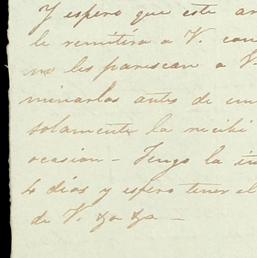 Y espero que este ar
le remitira a V. con
no les parescan a V
minarlos antes de em
solamente la recibi
ocasion – Tengo la in
4 dias y espero tener el
de V. &a &a –